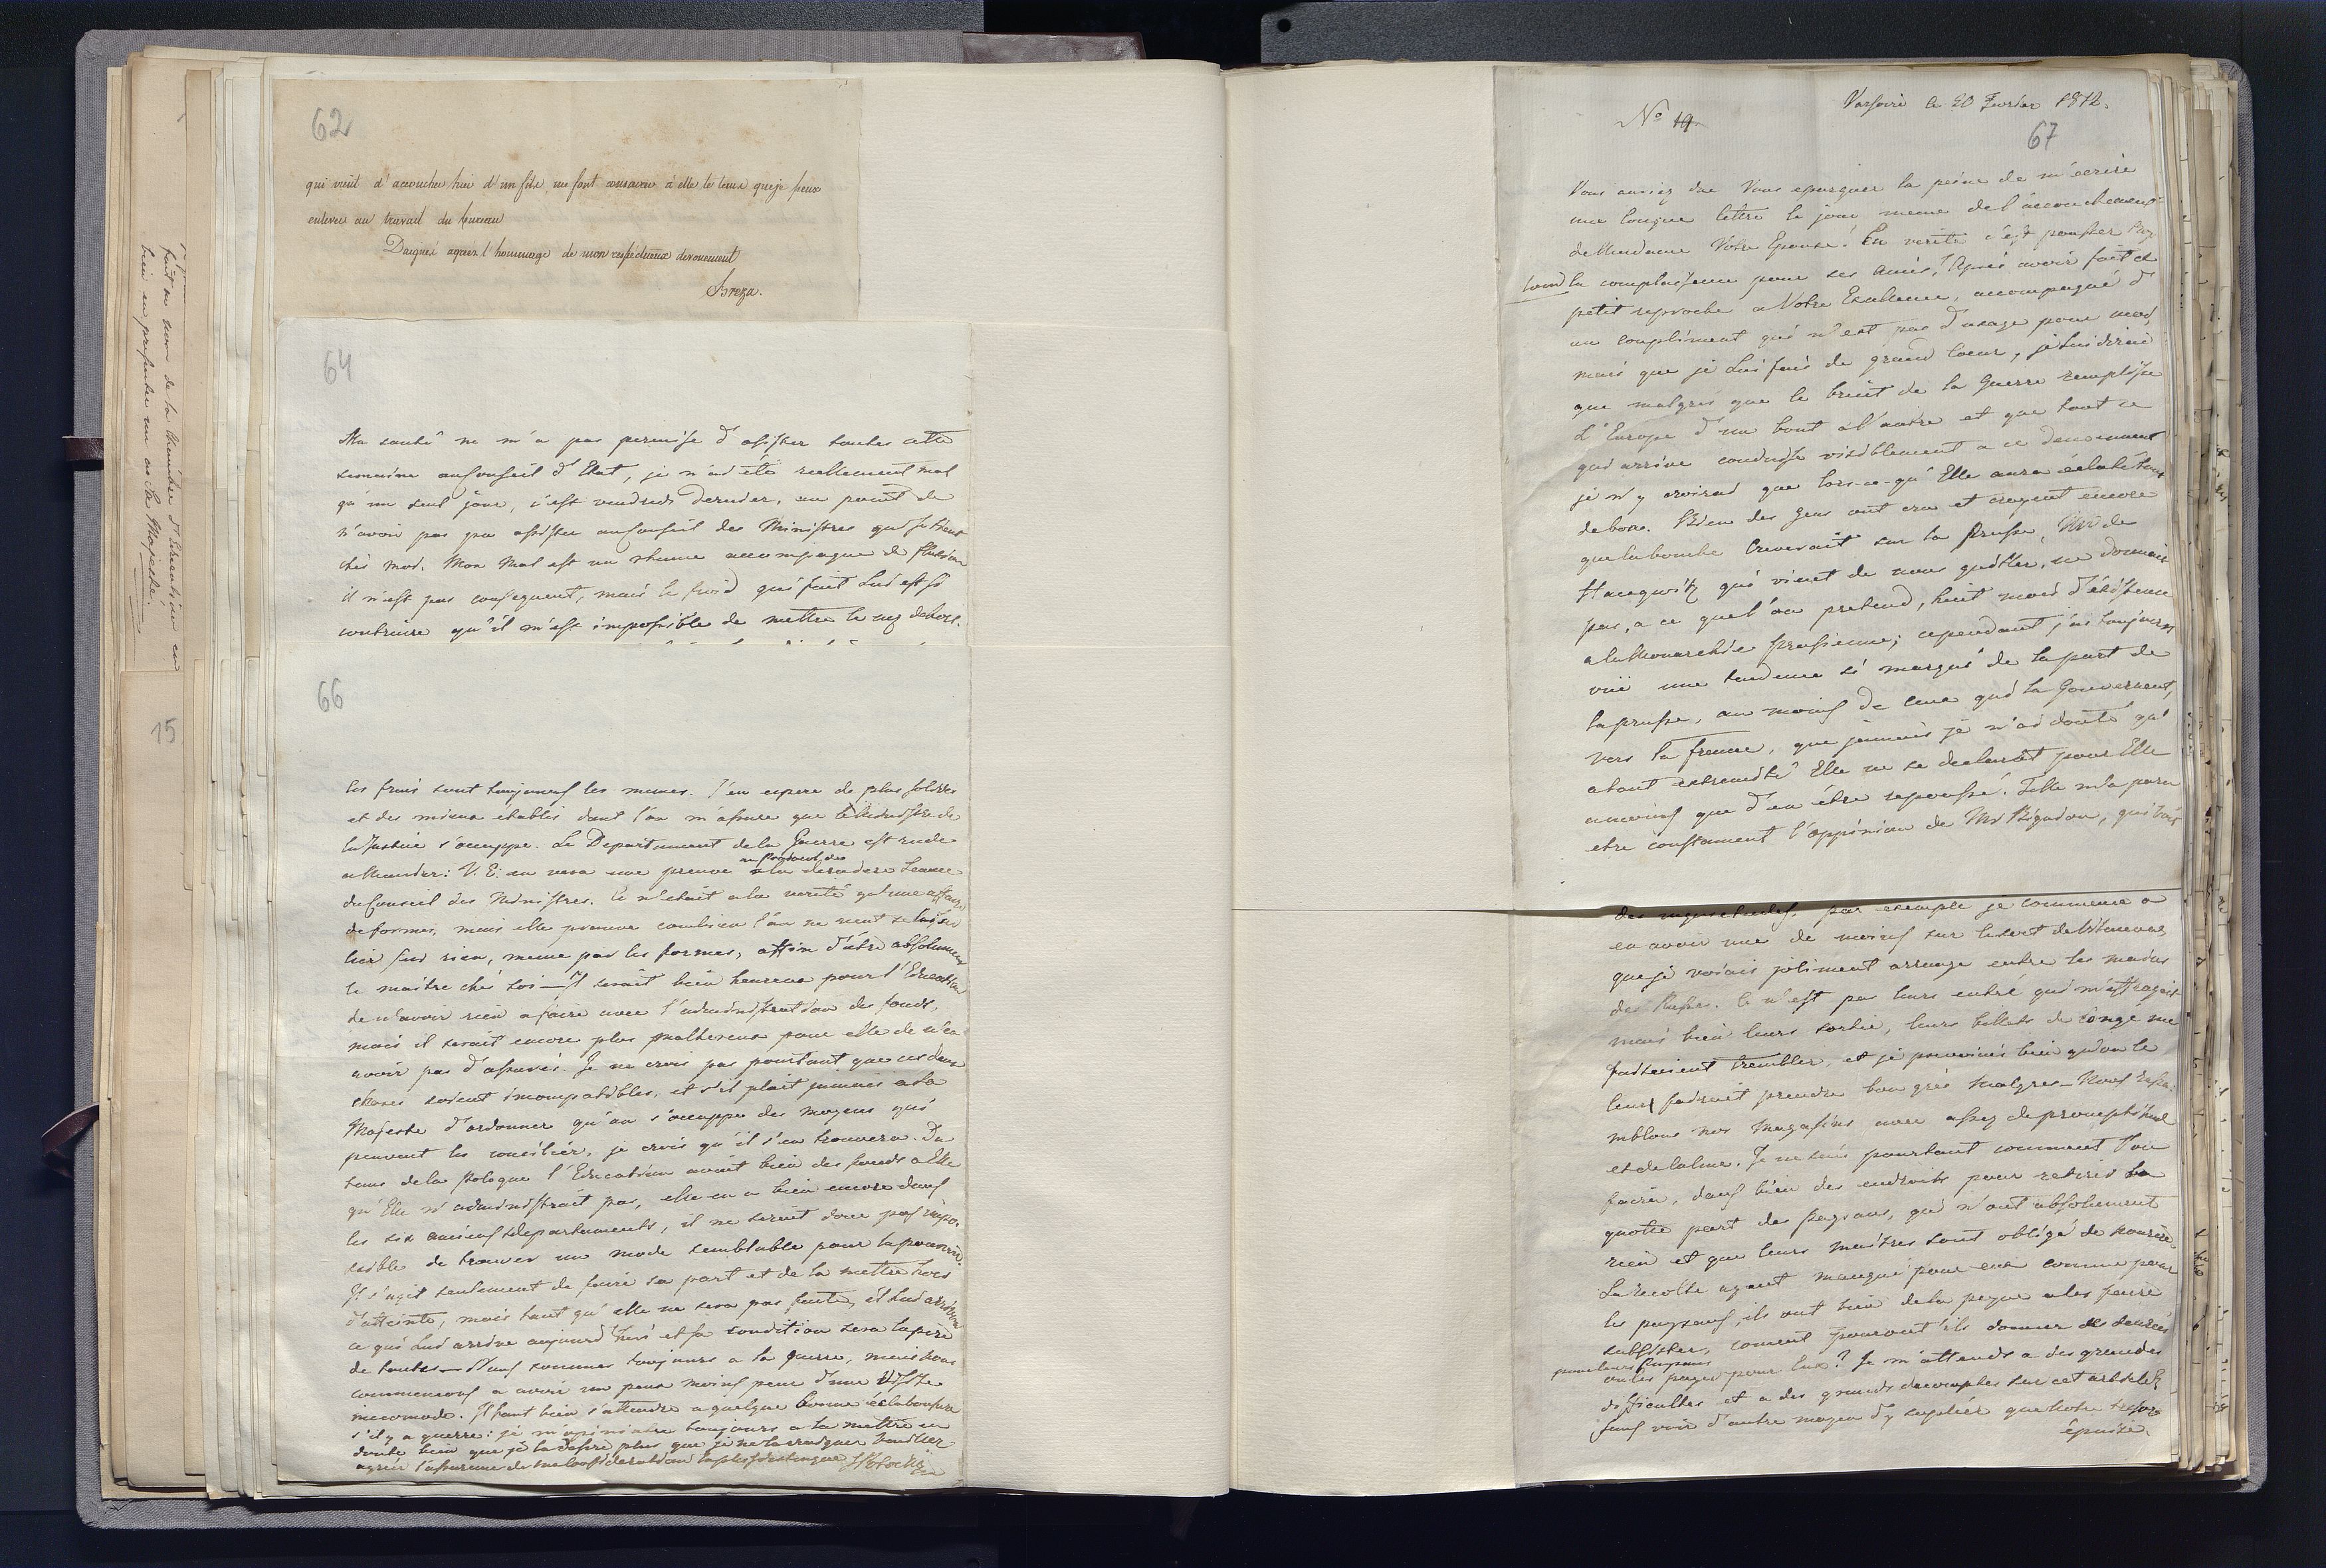 bien en presenter un a Sa Majesté.
faut au nom de la Chambre d'Education en
15
62
qui vient d'accoucher hier d'un fils, me font consacrer à elle le tems que je peux
enlever au travail du bureau
Daignés agréer l'hommage de mon respectueux devouement
Breza.
64
Ma santé ne m'a pas permise d'assister toutes cette
semaine au Conseil d'Etat, je n'ai été reellement mal
qu'un seul jour, c'est vendredi dernier, au point de
n'avoir pas pu assister au Conseil des Ministres qui se tient
chés moi. Mon mal est un rhume accompagné de fluxion
il n'est pas consequent, mais le froid qui fait lui est si
contraire qu'il m'est impossible de mettre le nez dehors.
66
les frais sont toujours les memes. J'en espere de plus solides
et des mieux établis dont l'on m'assure que le Ministre de
la Justice s'occuppe. Le Departement de la Guerre est rude
a manier: V. E. en verra une preuve au Protocol des la derniere Seance
du Conseil des Ministres. Ce n'etait a la verité qu'une affaire
de formes, mais elle prouve combien l'on ne veut se laisser
lier sur rien, meme par les formes, affin d'être absolument
le maitre chés soi — Il serait bien heureux pour l'Education
de n'avoir rien a faire avec l'administration des fonds,
mais il serait encore plus malheureux pour elle de n'en
avoir pas d'assurés. Je ne crois pas pourtant que ces deux
choses soient incompatibles, et s'il plait jamais a Sa
Majesté d'ordonner qu'on s'occuppe des moyens qui
peuvent les concilier, je crois qu'il s'en trouvera. Du
tems de la Pologne l'Education avait bien des fonds a Elle
qu'Elle n'administrait pas, elle en a bien encore dans
les six anciens departements, il ne serait donc pas impos-
sible de trouver un mode semblable pour la pourvoir.
Il s'agit seulement de faire sa part et de la mettre hors
d'atteinte, mais tant qu'elle ne sera pas faite, il lui arrivera
ce qui lui arrive aujourd'hui et sa condition sera la pire
de toutes — Nous sommes toujours a la guerre, mais nous
commencons a avoir un peu moins peur d'une visite
incomode. Il faut bien s'attendre a quelque bonne éclaboussure
s'il y a guerre: je m'opiniatre toujours a la mettre en
doute bien que je la desire plus que je ne la craigne. Veuillez
agréer l'assurance de ma consideration la plus distinguée SPotocki
No 19
Varsovie le 20 Fevrier 1812.
67
Vous auriez due Vous epargner la peine de m'écrire
une longue lettre le jour meme de l'accouchement
de Madame Votre Epouse. En verité c'est pousser trop
loin la complaisance pour ses Amis. Après avoir fait ce
petit reproche a Votre Excellence, accompagné d'
un compliment qui n'est pas d'usage pour moi,
mais que je Lui fais de grand coeur, je Lui dirai
que malgrés que le bruit de la Guerre remplisse
l'Europe d'un bout a l'autre et que tout ce
qui arrive conduise visiblement a ce denouement
je n'y croirai que lors-ce-qu'Elle aura éclaté tout
de bon. Bien des gens ont cru et croyent encore
que la bombe creverait sur la Prusse, Mr de
Haugwitz qui vient de nous quitter, ne donnait
pas, a ce que l'on pretend, huit mois d'existence
a la Monarchie prussienne; cependant j'ai toujours
vüe une tendence si marqué de la part de
la Prusse, au moins de ceux qui la Gouvernent,
vers la France, que jamais je n'ai douté qu'
a tout extremité Elle ne se declarat pour Elle
a moins que d'en être repoussé. Telle m'a paru
etre constament l'oppinion de Mr Bignon, qui voit
des inquietudes, par exemple je commence a
en avoir une de moins sur le sort de
que je voiais joliment arrangé entre les mains
des Russes. Ce n'est pas leurs entré qui m'effrayait
mais bien leurs sortie, leurs billets de congé me
faisaient trembler, et je prevoiais bien qu'on le
leurs fairait prendre bon grés malgrés — Nous rassem-
mblons nos magasins avec assez de promptitude
et de calme. Je ne sais pourtant comment l'on
faira, dans bien des endroits pour retirer la
quotte part des paysans, qui n'ont absolument
rien et que leurs maitres sont obligé de nourrir.
La recolte ayant manqué pour eux comme pour
les paysans, ils ont bien de la peine a les faire
subsister, coment pouront'ils donner des denrées
pour leurs paysans
ou les payer pour Eux? Je m'attends a des grandes
difficultés et a des grands decomptes sur cet article
sans voir d'autre moyen d'y supléer que notre tresor
épuisé.